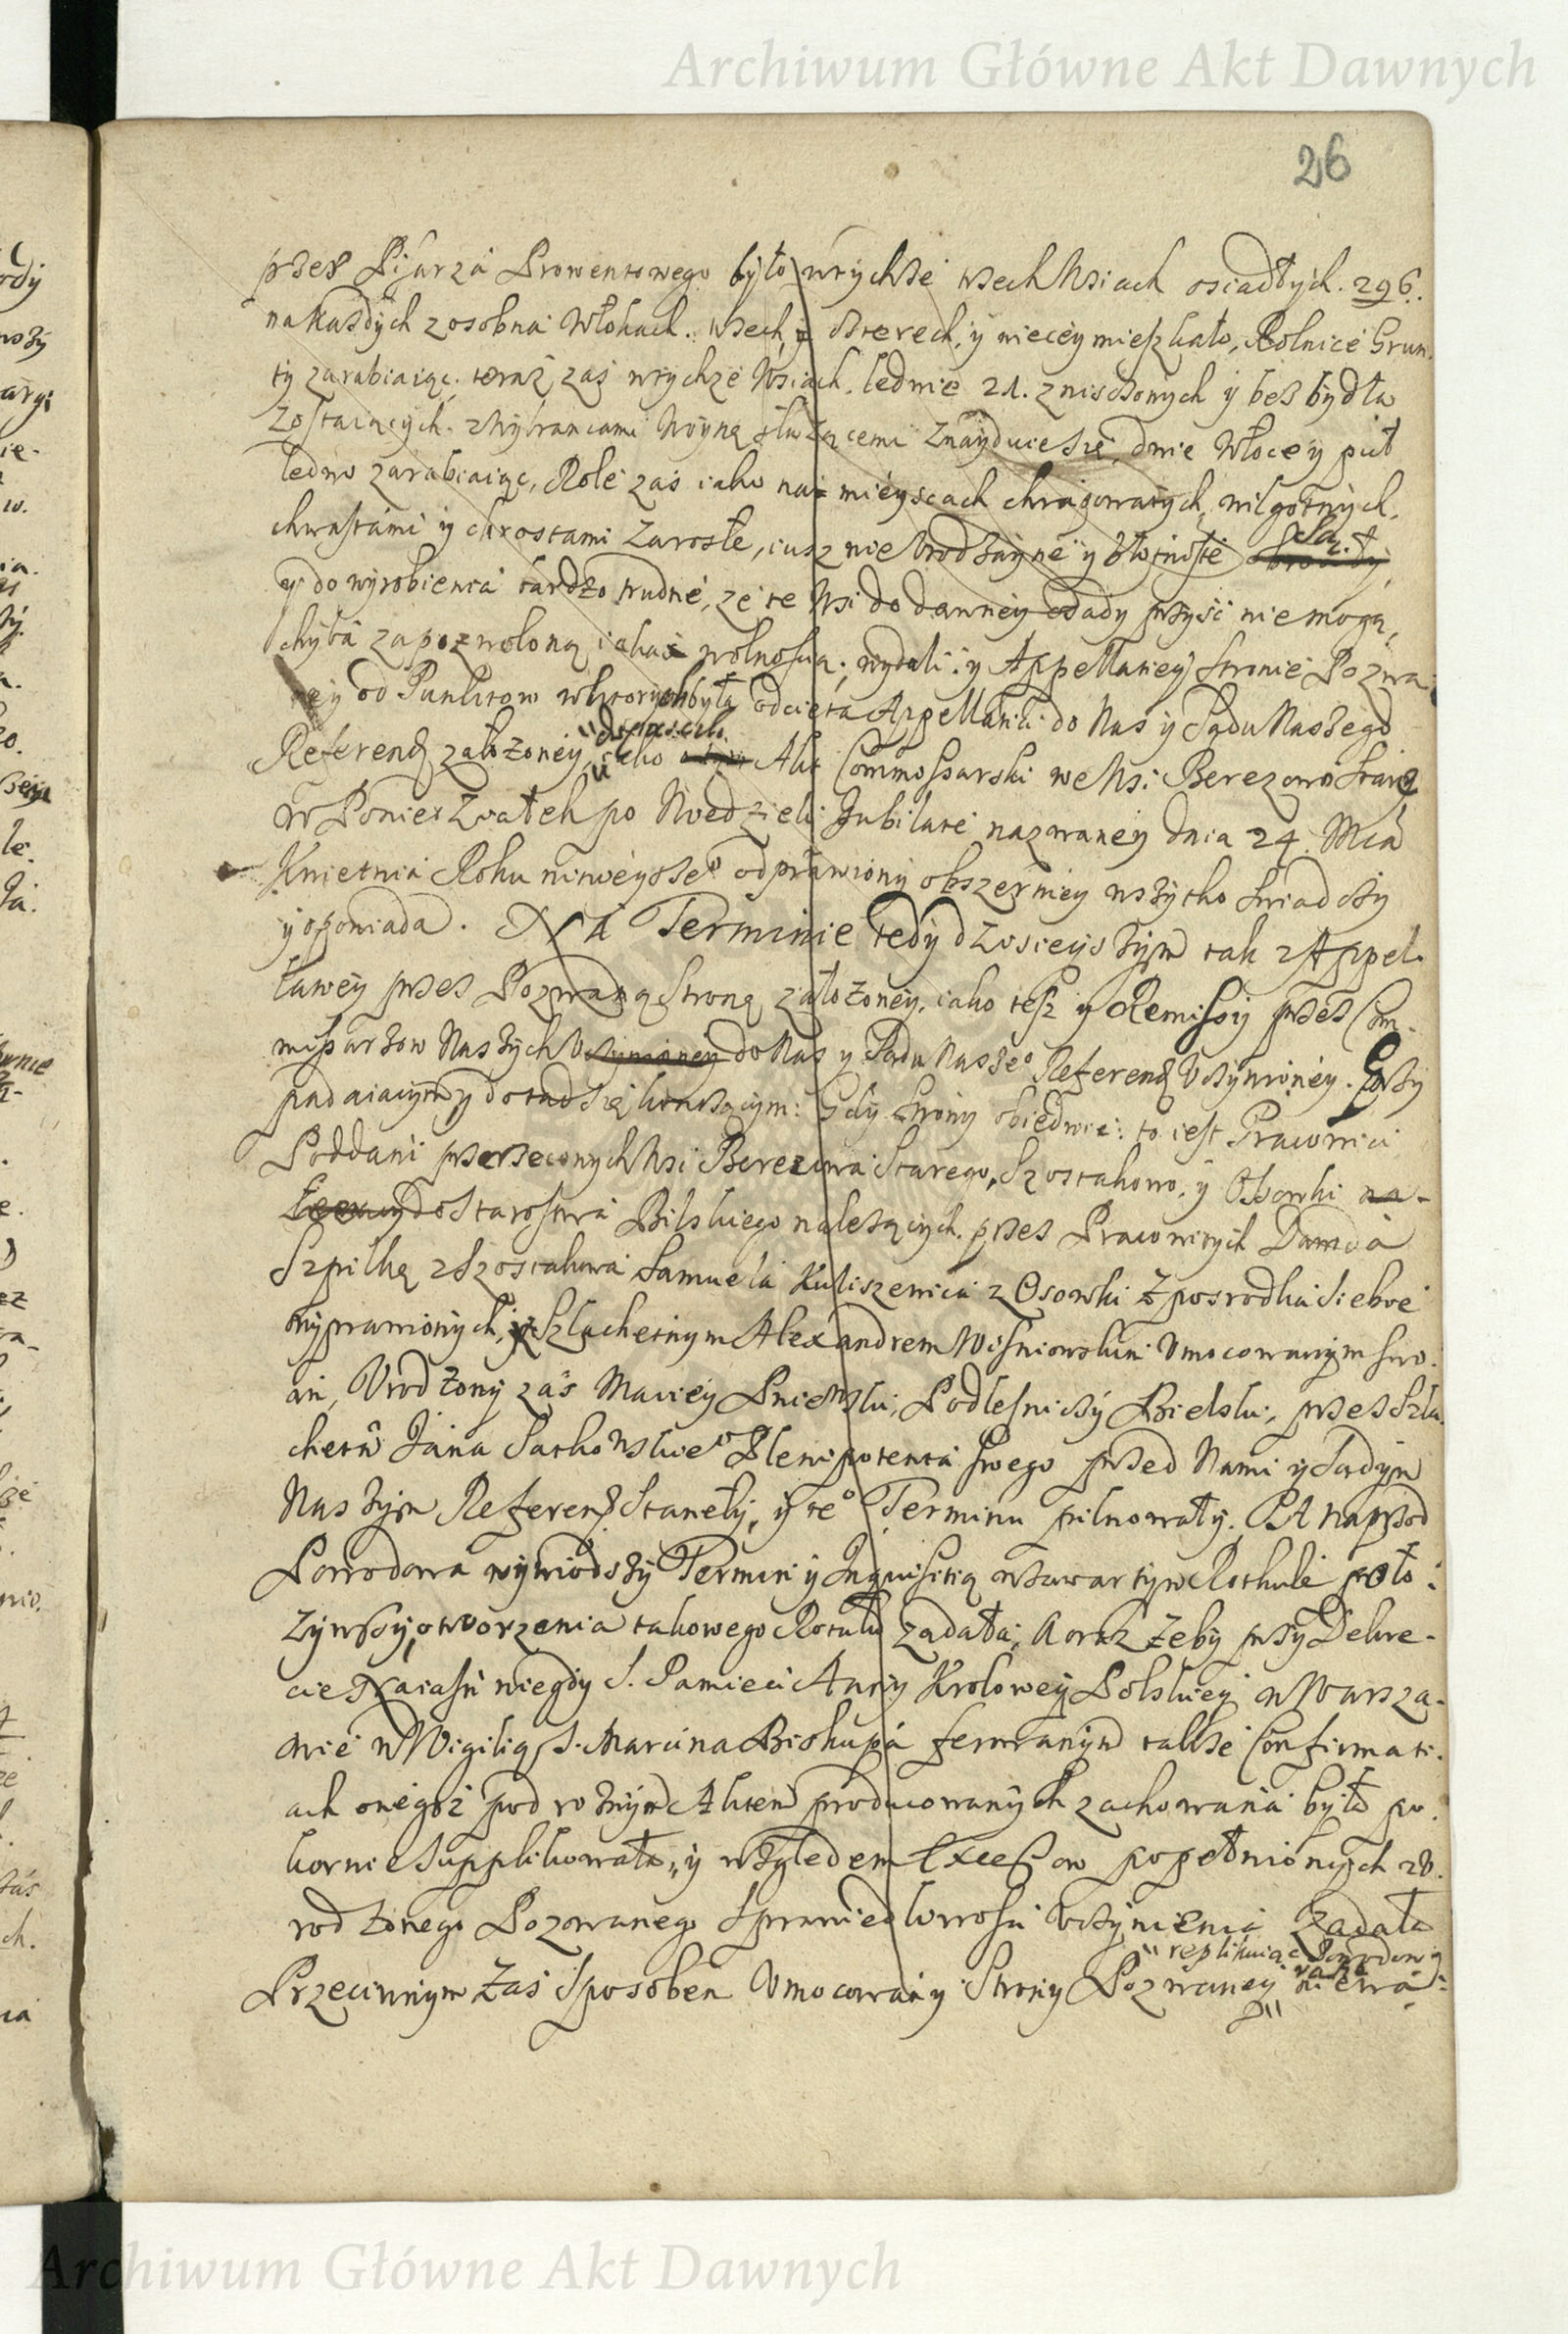 Archiwum Główne Akt Dawnych
26
przes Pisarza Prowentowego było wtychże trzech Wsiach osiadłych. 296.
na każdych zosobna Włokach. trzech, y czterech, y więcey mieszkało, Rolnice Grun
ty zarabiaiąc. teraz zaś wtychże Wsiach. ledwie 21. zniszczonych y bes bydła
zostaiących. zwybrancami Woyną służącemi znayduie się, dwie Włoce y puł
ledwo zarabiaiąc, Role zaś iako na mieyscach chragowatych, wilgotnych,
chwastámi y chrostami zarosłe, iusz nie vrodzayne y błotniste są.
y do wyrobienia bardzo trudne, że te Wsi do dawney osady przyść nie mogą,
chyba zapozwoloną iakaś wolnością; wydali y Appellaciey Stronie Pozwa
ney od Punktow wktorych była odcięta Appellatii do Nas y Sądu Naszego
Referend założoney, dopuścili. iako Akt Commissarski we Wsi Berezowo Stare
w Poniedziałek po Niedzieli Jubilate nazwaney dnia 24. Mca
Kwietnia Roku ninieyszeo odprawiony obszerniey wszytko świadczy
y opowiada. Na Terminie tedy dzisieyszym tak z Appel
lacyey przes Pozwaną Stronę założoney, iako tesz y Remissy przes Com
missarzow Naszych do Nas y Sądu Nasze° Referend Vczynioney. Przy
padaiącym y dotąd się kontinuuiącym: Gdy Strony obiedwie: to iest Pracowici
Poddani pomienionych Wsi Berezowa Starego, Szostakowo, y Osowki
do Starostwa Bilskiego należących. przes Pracowitych Dawida
Szpilkę z Szostakowa Samuela Kuliszewica z Osowki zposrodka siebie
wyprawionych, z Szlachetnym Alexandrem Wiśniowskim Vmocowanym swo
im, Vrodzony zaś Maciey Pniewski, Podleśniczy Bielski, przes Szla
chetn Jana Sachowskie° Plenipotenta swego przed Nami y Sądem
Naszym Referend Stanęły, y te° Terminu pilnowały. A naprzod
Powodowa wywiodszy Termin y Inquisitią wzawartym Rotule poło
żywszy, otworzenia takowego Rotułu żądała, a oraz żeby przy Dekre
cie Naiaśń niegdy S. Pamięci Anny Krolowey Polskiey w Warsza
wie w Wigilią S. Marcina Biskupa ferowanym także Confirmati
ach onegoż pod roźnym Aktem producowanych zachowana była po
kornie supplikowała, y względem Excessow popełnionych z V
rodzonego Pozwanego Sprawiedliwości vczynienia żądała
Przeciwnym zaś Sposobem Vmocowany Strony Pozwaney replikuiąc Powodowy
niewa
Archiwum Główne Akt Dawnych